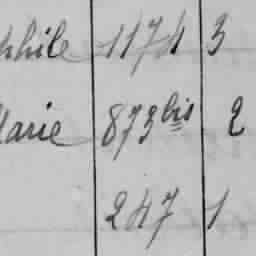 phile 1174 3
Marie 873 bis 2
247 1